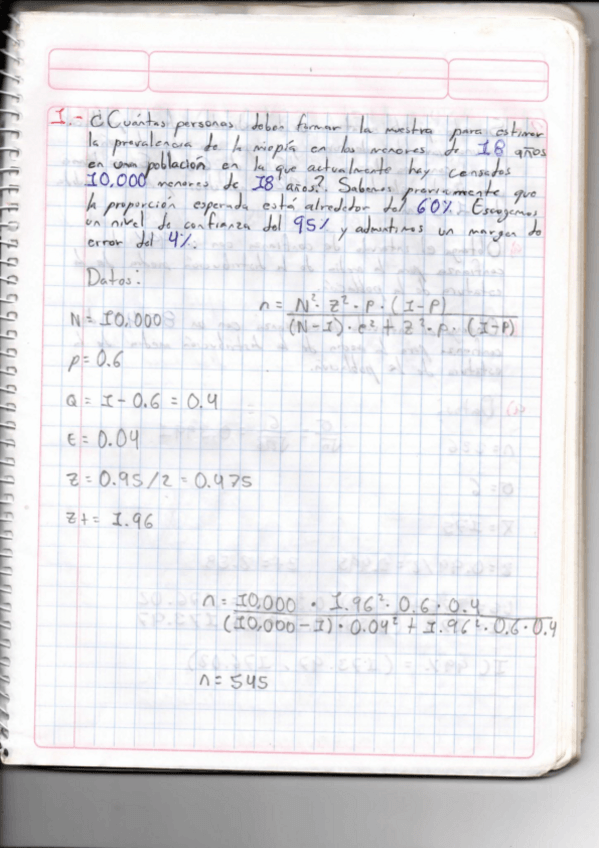 1.- ¿Cuántas personas deben formar la muestra para estimar
la prevalencia de la miopía en los menores de 18 años
en una población en la que actualmente hay censados
10,000 menores de 18 años? Sabemos previamente que
la proporción esperada está alrededor del 60% Escogemos
un nivel de confianza del 95% y admitimos un margen de
error del 4%.
Datos:
n = N²· Z²· P · (1-P)
(N-1)· e² + Z²· p · (1-p)
N = 10,000
p = 0.6
Q = 1 - 0.6 = 0.4
E = 0.04
Z = 0.95/2 = 0.475
Zt = 1.96
n = 10,000 · 1.96² · 0.6 · 0.4
(10,000 - 1) · 0.04² + 1.96² · 0.6 · 0.4
n = 545